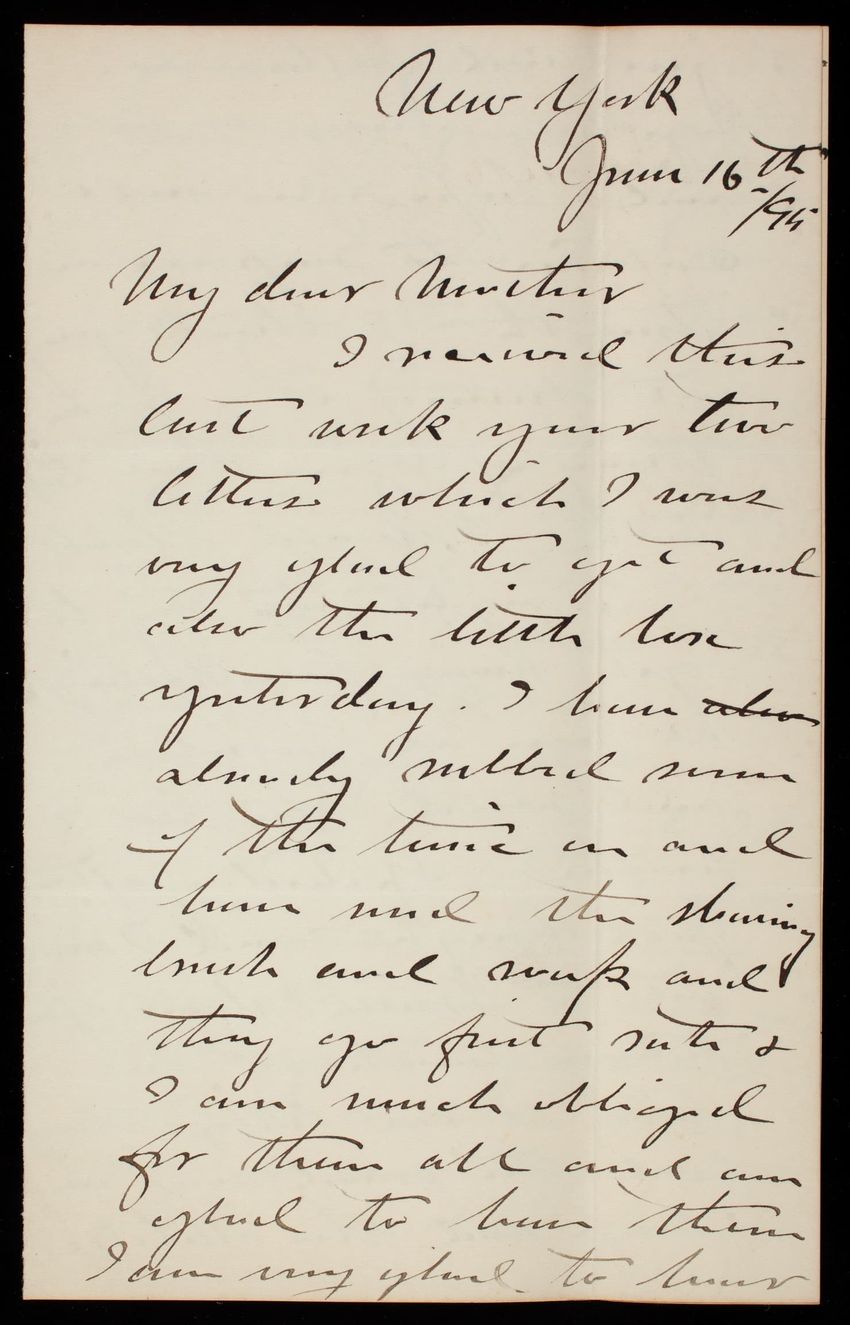 New York
June 16th
/95
My dear Mother
I received this
last week your two
letters which I was
very glad to get and
also the little box
yesterday. I have also
already rubbed some
of the tonic in and
have used the shaving
brush and soap and
they go first rate &
I am much obliged
for them all and am
glad to have them
I am very glad to hear